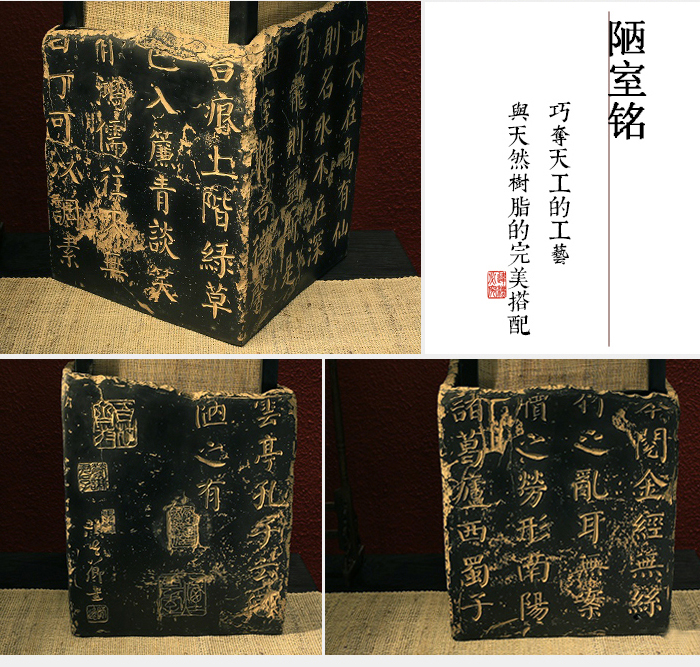 陋室铭
巧奪天工的工藝
與天然樹脂的完美搭配
山不在高有仙
則名水不在深
有龍則靈斯是
陋室惟吾德馨
苔痕上階緑草
色入簾青談笑
有鴻儒往來無
白丁可以調素
琴閱金經無絲
竹之亂耳無案
牘之勞形南陽
諸葛廬西蜀子
雲亭孔子云何
陋之有